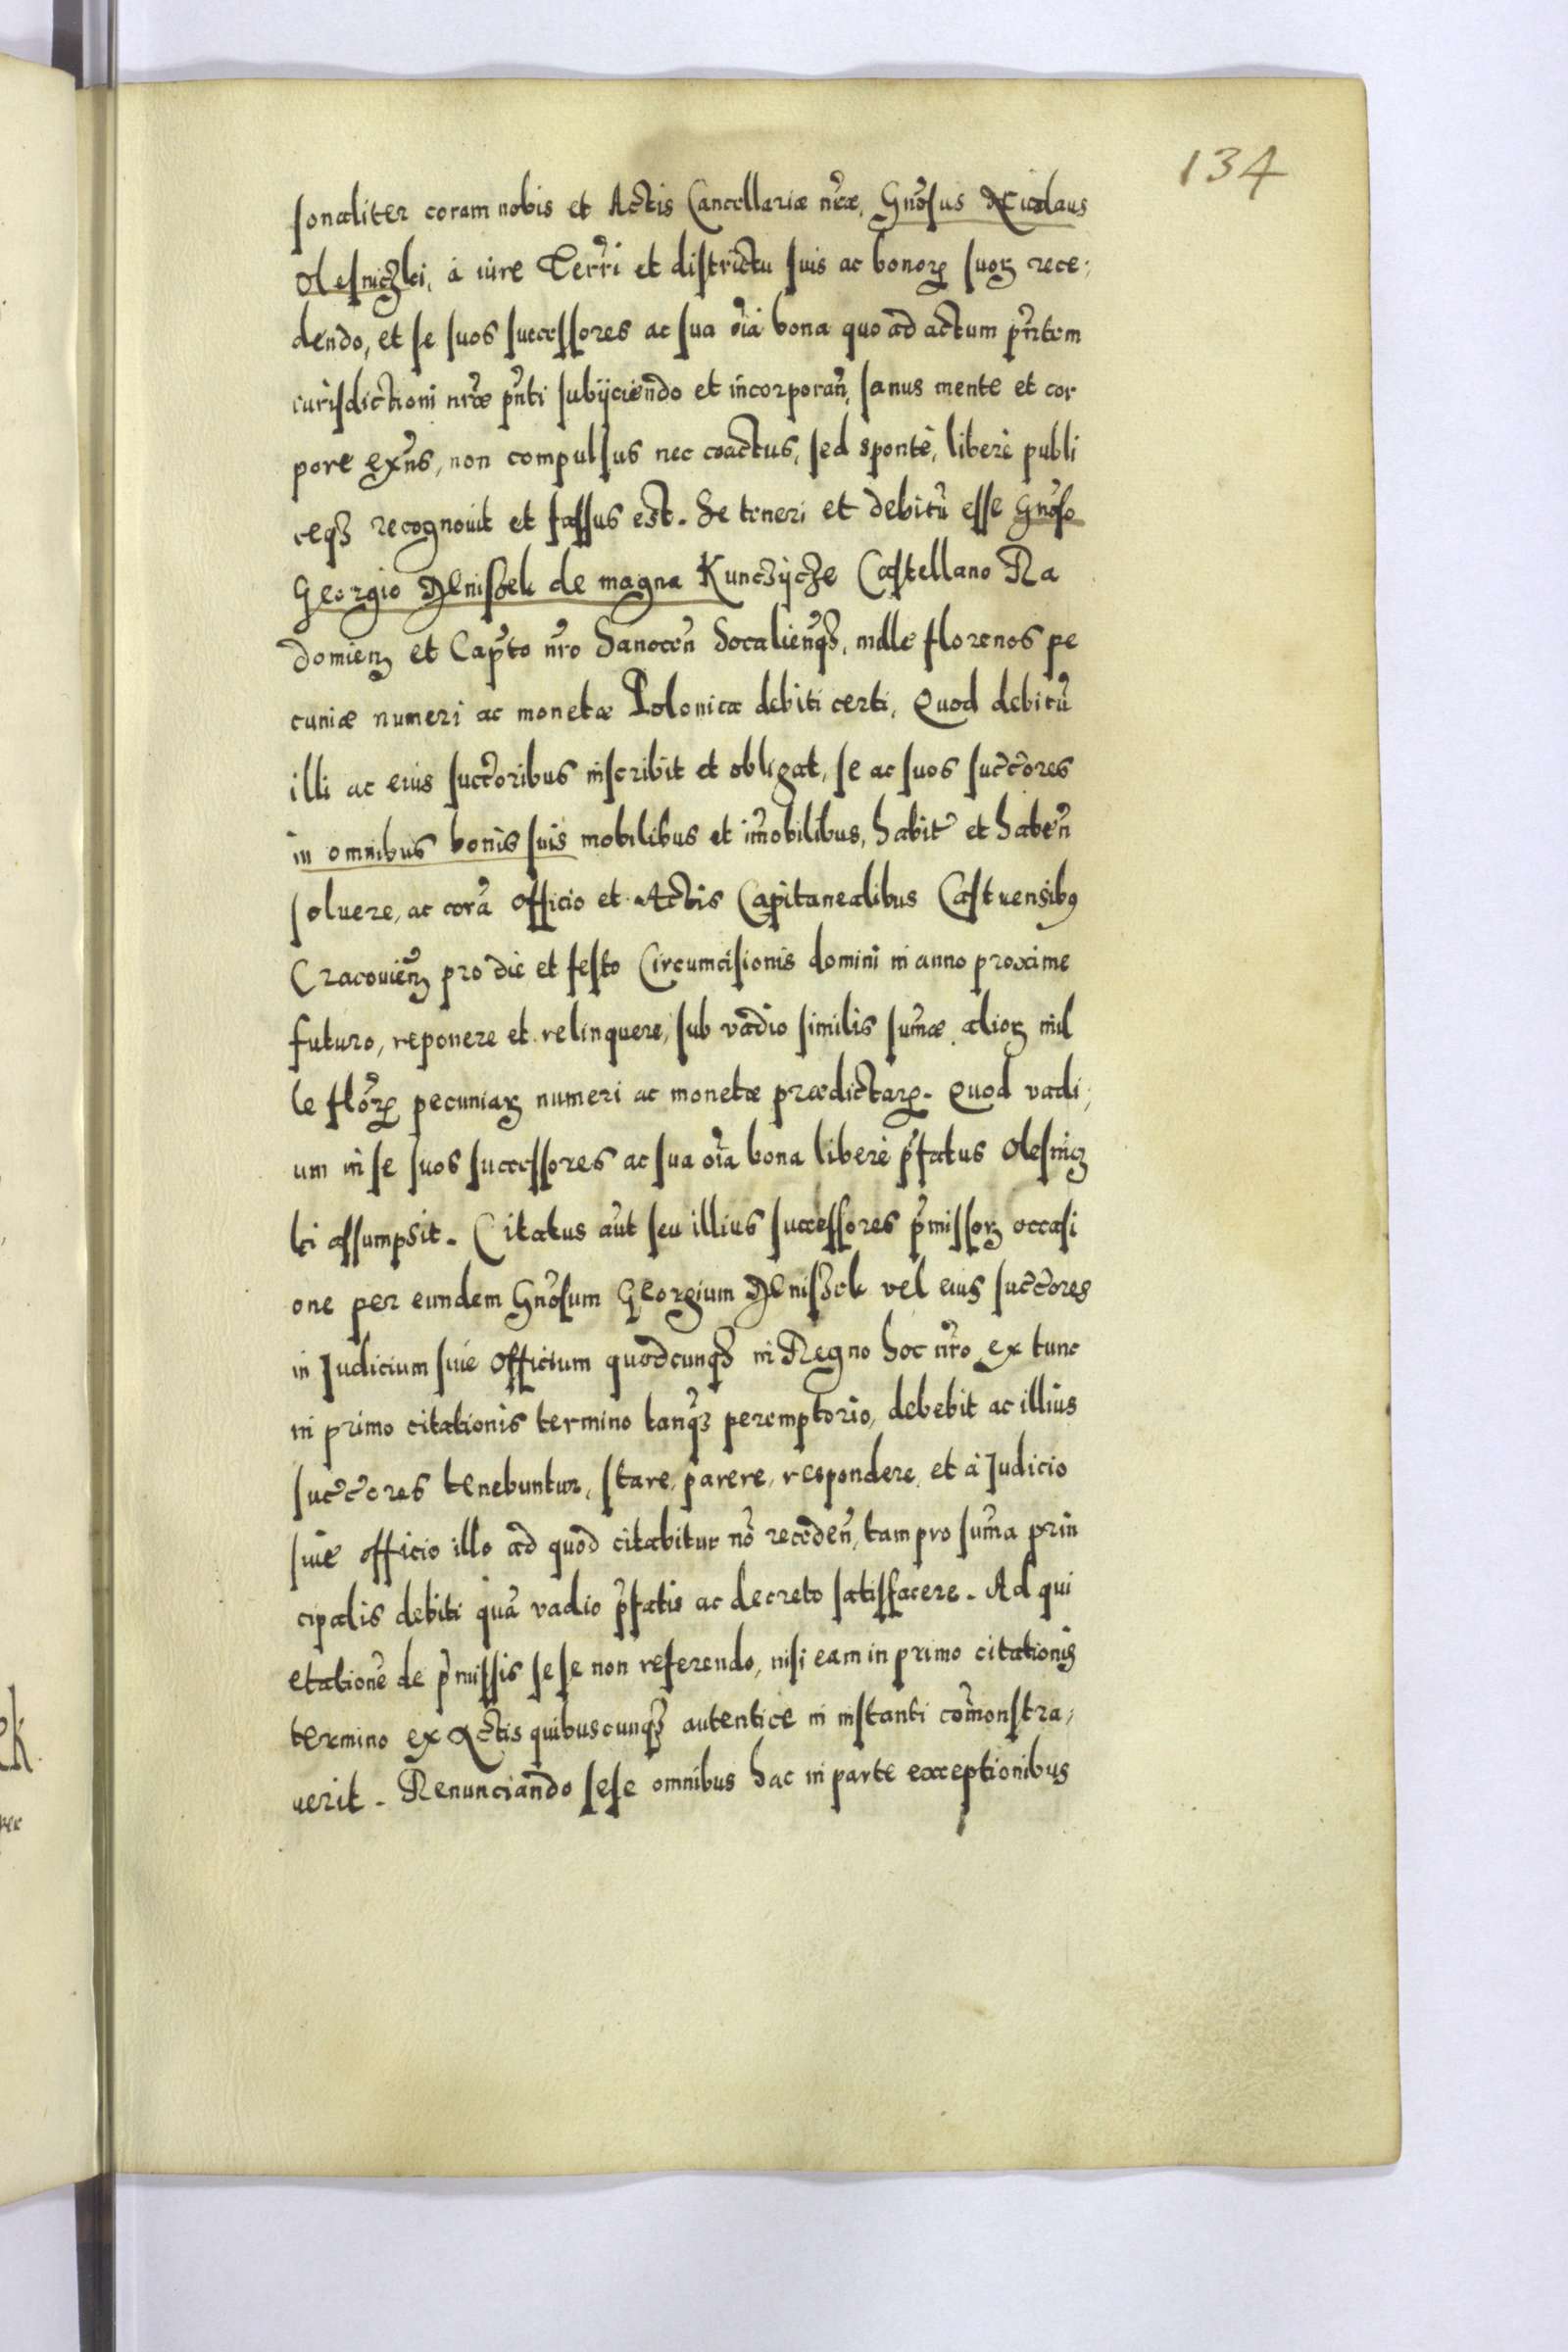 134
sonaliter coram nobis et Actis Cancellariæ nr̃æ, Gnõsus Nicolaus
Olesniczki, à iure Terr̃i et districtu suis ac bonoꝝ suoꝝ rece,
dendo, et se suos successores ac sua oĩa bona quo ad actum pñtem
iurisdictioni nr̃æ pñti subijciendo et incorporañ, sanus mente et cor
pore exñs, non compulsus nec coactus, sed sponte, liberè publi
ceqꝫ recognouit et fassus est. Se teneri et debitũ esse Gnõso
Georgio Mnischek de magna Kunczijcze Castellano Ra
domieñ et Cap̃to nr̃o Sanoceñ Socalieñqꝫ, mille florenos pe
cuniæ numeri ac monetæ Polonicæ debiti certi, Quod debitũ
illi ac eius succ̃oribus inscribit et obligat, se ac suos succ̃ores
in omnibus bonis suis mobilibus et im̃obilibus, habit̃ et habeñ
soluere, ac corã officio et Actis Capitanealibus Castrensibꝰ
Cracouieñ pro die et festo Circumcisionis domini in anno proxime
futuro, reponere et relinquere, sub vadio similis sum̃æ, alioꝝ mil
le flõꝝ pecuniaꝝ numeri ac monetæ prædictaꝝ. Quod vadi,
um in se suos successores ac sua oĩa bona liberè p̃fatus Olesnicz
ki assumpsit. Citatus aũt seu illius successores p̃missoꝝ occasi
one per eundem Gnõsum Georgium Mnischek vel eius succ̃ores
in Judicium siue Officium quodcunqꝫ in Regno hoc nr̃o ex tunc
in primo citationis termino tanqꝫ peremptorio, debebit ac illius
succ̃ores tenebuntur, stare, parere, respondere, et à Judicio
siue officio illo ad quod citabitur nõ recedeñ, tam pro sum̃a prin
cipalis debiti quã vadio p̃fatis ac decreto satisfacere. Ad qui
etationẽ de p̃missis sese non referendo, nisi eam in primo citationis
termino ex Actis quibuscunqꝫ autentice in instanti com̃onstra,
uerit. Renunciando sese omnibus hac in parte exceptionibus